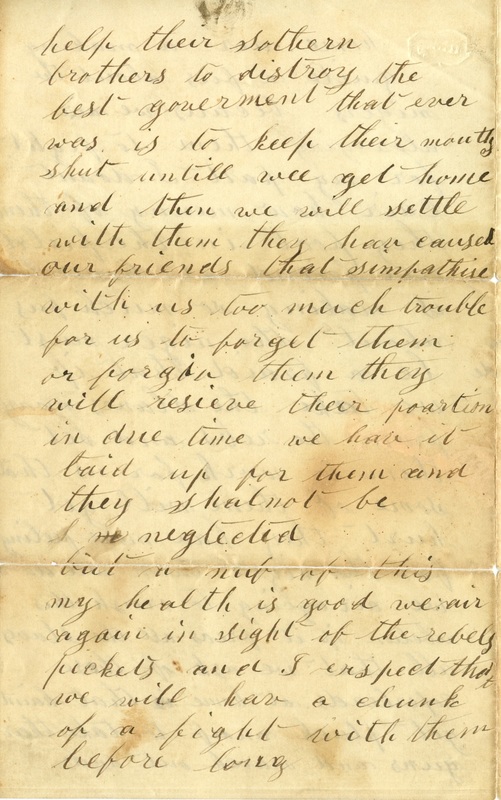 help their sothern
brothers to distroy the
best goverment that ever
was is to keep their mouths
shut untill wee get home
and then we will settle
with them they hav caused
our friends that simpathise
with us too much trouble
for us to forget them
or forgiv them they
will resieve their poartion
in due time we hav it
laid up for them and
they shalnot be
neglected
but a nuf of this
my health is good we air
again in sight of the rebels
pickets and I exspect that
we will hav a chunk
of a fight with them
before long